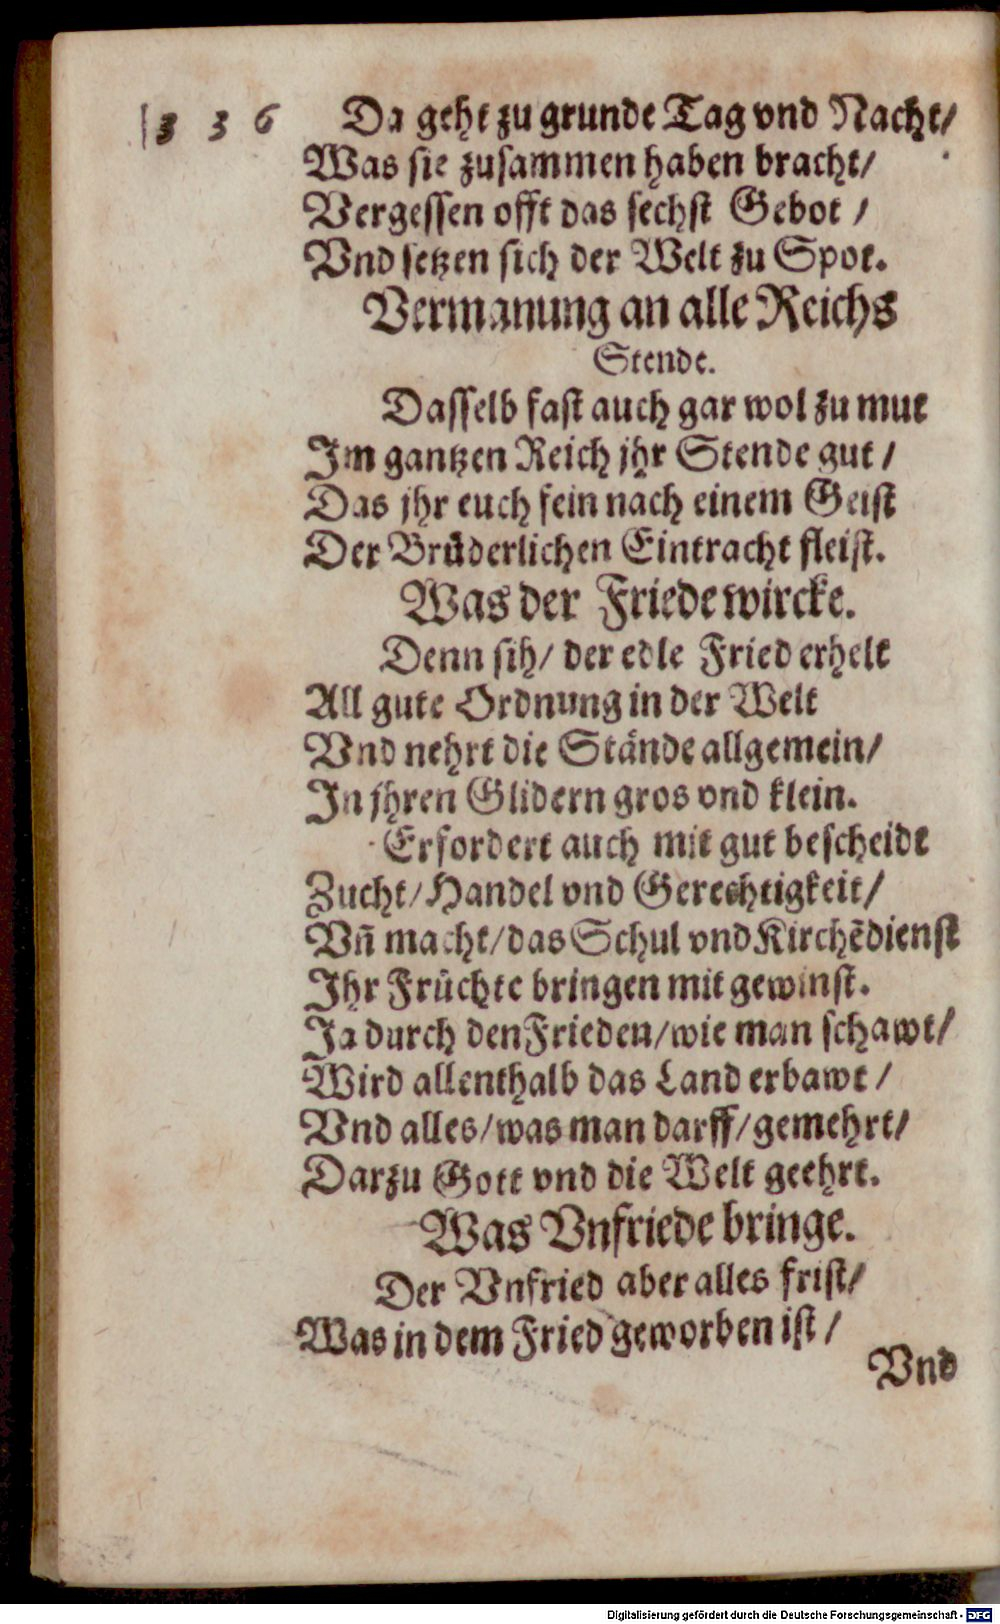 3 3 6 Da geht zu grunde Tag vnd Nacht/
Was sie zusammen haben bracht/
Vergessen offt das sechst Gebot /
Vnd setzen sich der Welt zu Spot.
Vermanung an alle Reichs
Stende.
Dasselb fast auch gar wol zu mut
Im gantzen Reich jhr Stende gut /
Das jhr euch fein nach einem Geist
Der Brůderlichen Eintracht fleist.
Was der Friede wircke.
Denn sih/ der edle Fried erhelt
All gute Ordnung in der Welt
Vnd nehrt die Stände allgemein/
In jhren Glidern gros vnd klein.
Erfordert auch mit gut bescheidt
Zucht/ Handel vnd Gerechtigkeit/
Vñ macht/ das Schul vnd Kirchẽdienst
Ihr Früchte bringen mit gewinst.
Ja durch den Frieden/ wie man schawt/
Wird allenthalb das Land erbawt /
Vnd alles/ was man darff/ gemehrt/
Darzu Gott vnd die Welt geehrt.
Was Vnfriede bringe.
Der Vnfried aber alles frist/
Was in dem Fried geworben ist /
Vnd
Digitalisierung gefördert durch die Deutsche Forschungsgemeinschaft - DFG